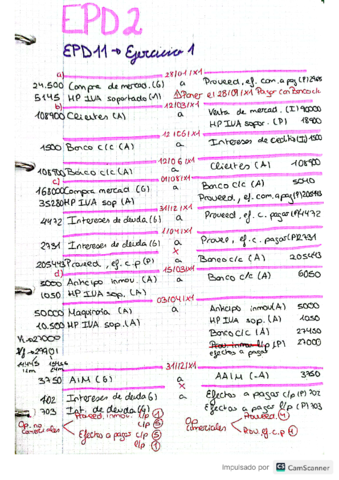 EPD2
EPD11 → Ejercicio 1
a) 28/01/X1
24.500 Compra de mercad. (G) a Proveed, ef. com. a pag (P)
5145 HP IVA soportado (A) ⚠Poner el 28/01/X1 Pagar con Banco
b) 12/03/X1
108900 Clientes (A) a Vnta de mercad. (I) 90000
HP IVA sopor. (P) 18900
1500 Banco c/c (A) a Intereses de (I) 1500
12/06/X1
108900 Banco c/c (A) a Clientes (A) 108900
c) 01/08/X1
168000 Compra mercad (G) a Banco c/c (A) 5040
35280 HP IVA sop (A) Proveed, ef. com, a pag (P)
31/12/X1
4472 Intereses de deuda (G) a Proveed, ef. c. pagar (P) 4472
1/04/X1
2731 Intereses de deuda (G) a Provee, ef. c. pagar (P) 2731
x
205443 Proveed, ef. c. p (P) a Banco c/c (A) 205443
d) 15/03/X1
5000 Anticipo inmov. (A) a Banco c/c (A) 6050
1050 HP IVA sop. (A)
03/04/X1
50000 Maquinaria (A) a Anticipo inmov (A) 5000
10.500 HP IVA sop. (A) HP IVA sop. (A) 1050
Banco c/c (A) 27450
c/p (P) 27000
efectos a pagar
31/12/X1
3750 AIM (G) a AAIM (-A) 3750
x
702 Intereses de deuda (G) a Efectos a pagar c/p (P) 702
703 Int. de deuda (G) Efectos a pagar l/p (P) 703
Op. no comerciales Proveed. inmov. c/p
Efecto a pagar c/p
l/p
Op comerciales Proveed.
Prov. ef. c. p
Impulsado por CS CamScanner